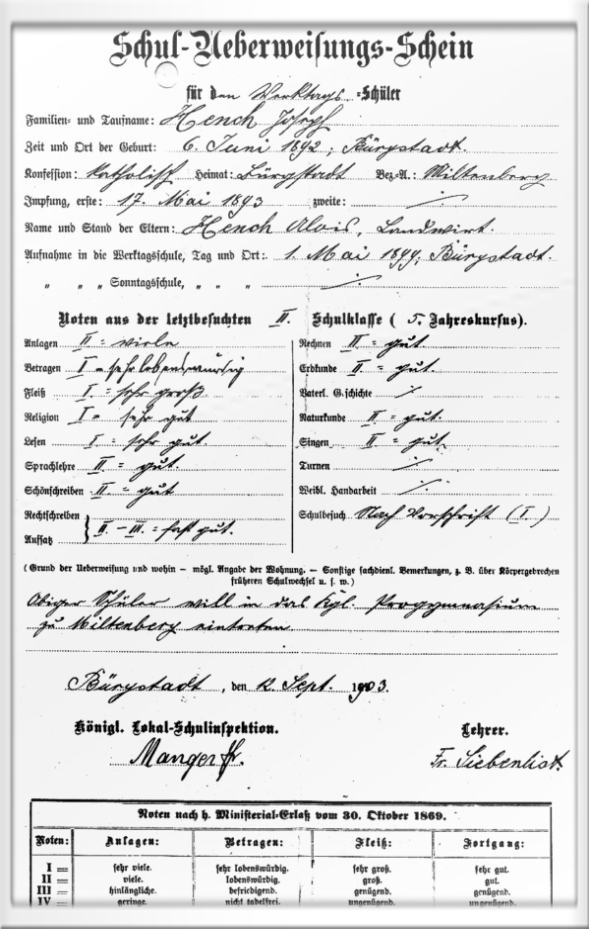 Schul-Ueberweisungs-Schein
für den Werktags-Schüler
Familien- und Taufname: Hench Joseph
Zeit und Ort der Geburt: 6. Juni 1892; Bürgstadt.
Konfession: katholisch Heimat: Bürgstadt Bez.-A.: Miltenberg
Impfung, erste: 17. Mai 1893 zweite: ·/.
Name und Stand der Eltern: Hench Alois, Landwirt.
Aufnahme in die Werktagsschule, Tag und Ort: 1. Mai 1899; Bürgstadt.
„ „ Sonntagsschule, „ „ „ ·/.
Noten aus der letztbesuchten II. Schulklasse ( 5. Jahreskursus).
Anlagen II = viele
Betragen I = sehr lobenswürdig
Fleiß I. = sehr groß
Religion I = sehr gut
Lesen I. = sehr gut
Sprachlehre II. = gut.
Schönschreiben II. = gut
Rechtschreiben
Aufsatz } II. – III. = fast gut.
Rechnen II. = gut
Erdkunde II. = gut.
Vaterl. G.schichte ·/.
Naturkunde II = gut.
Singen II = gut.
Turnen ·/.
Weibl. Handarbeit ·/.
Schulbesuch Nach Vorschrift (I.)
(Grund der Ueberweisung und wohin – mögl. Angabe der Wohnung. – Sonstige sachdienl. Bemerkungen, z. B. über Körpergebrechen
früheren Schulwechsel u. s. w.)
Obiger Schüler will in das Kgl. Progymnasium
zu Miltenberg eintreten.
Bürgstadt, den 12. Sept. 1903.
Königl. Lokal-Schulinspektion.
Manger Pfr.
Lehrer.
Fr. Siebenlist.
Noten nach h. Ministerial-Erlaß vom 30. Oktober 1869.
Noten: Anlagen: Betragen: Fleiß: Fortgang:
I = sehr viele. sehr lobenswürdig. sehr groß. sehr gut.
II = viele. lobenswürdig. groß. gut.
III = hinlängliche. befriedigend. genügend. genügend.
IV = geringe. nicht tadelfrei. ungenügend. ungenügend.